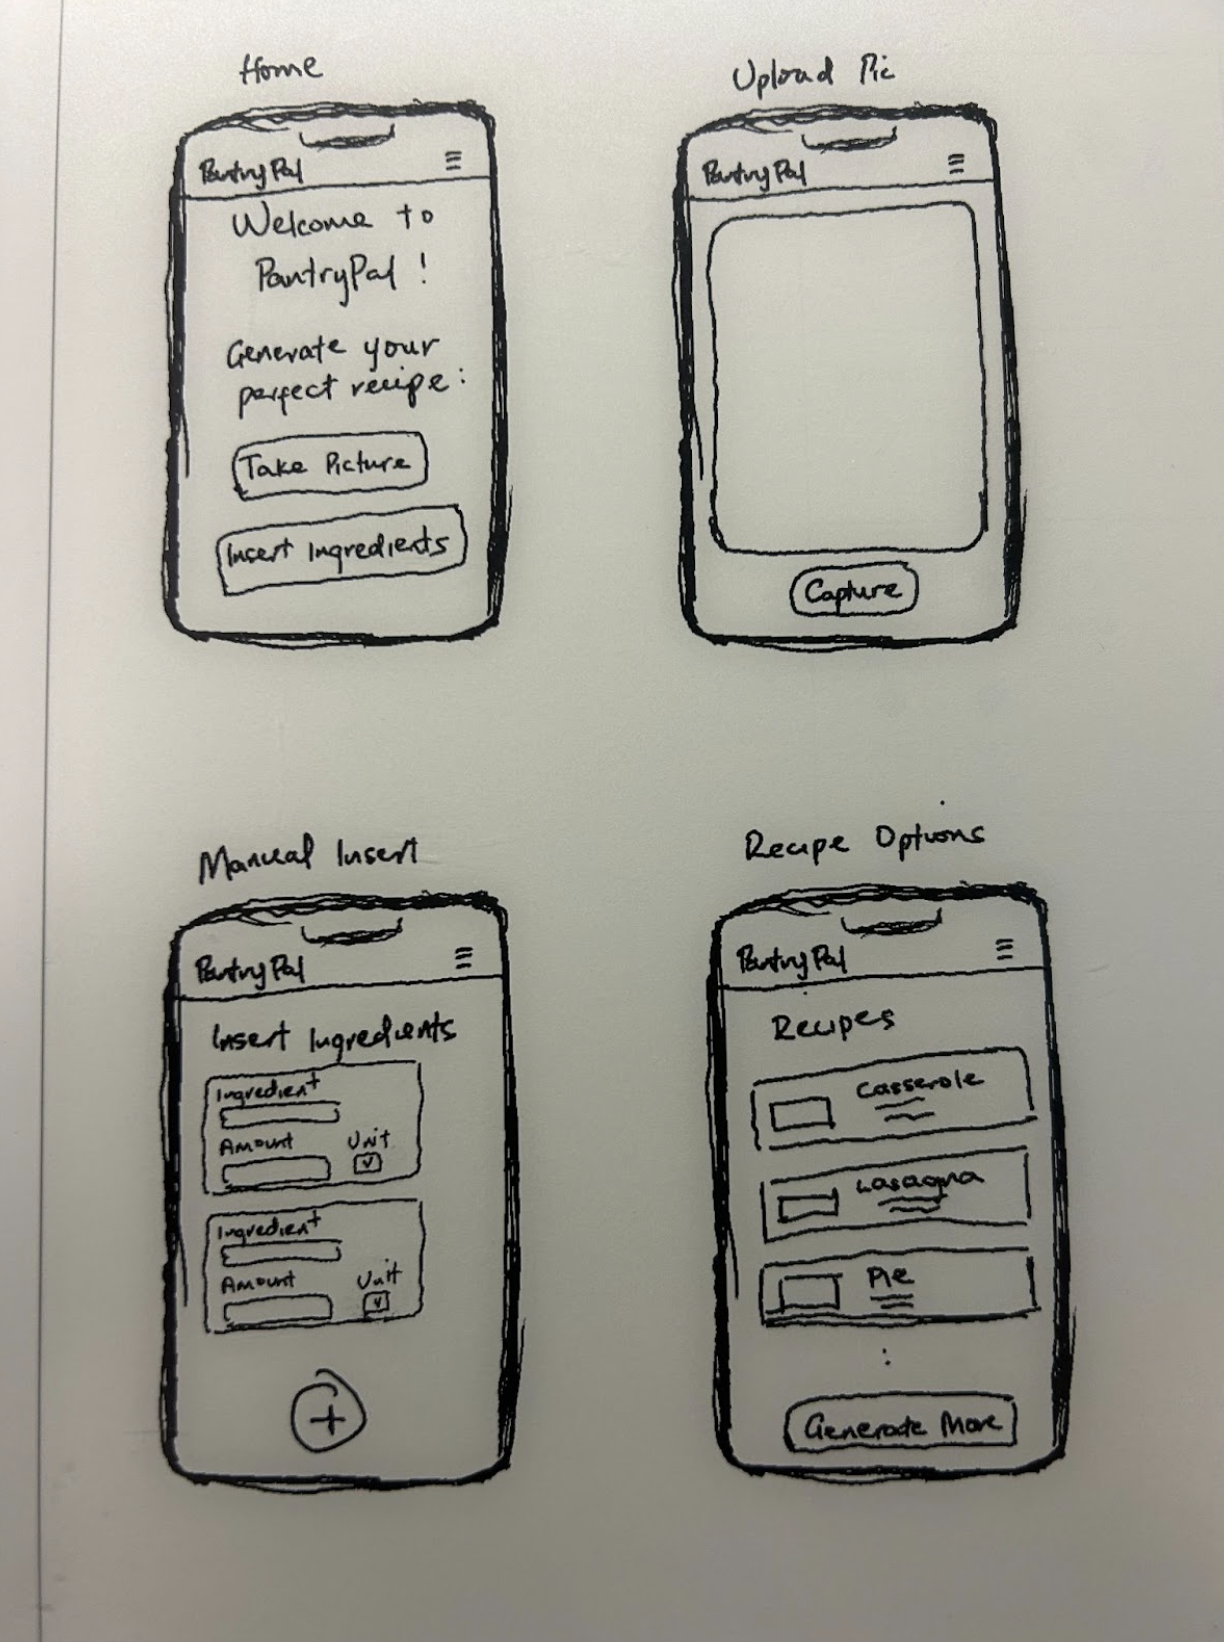 Home
PantryPal
Welcome to
PantryPal !
Generate your
perfect recipe:
Take Picture
Insert Ingredients
Upload Pic
PantryPal
Capture
Manual Insert
PantryPal
Insert Ingredients
Ingredient
Amount Unit
Ingredient
Amount Unit
+
Recipe Options
PantryPal
Recipes
Casserole
Lasagna
Pie
Generate More